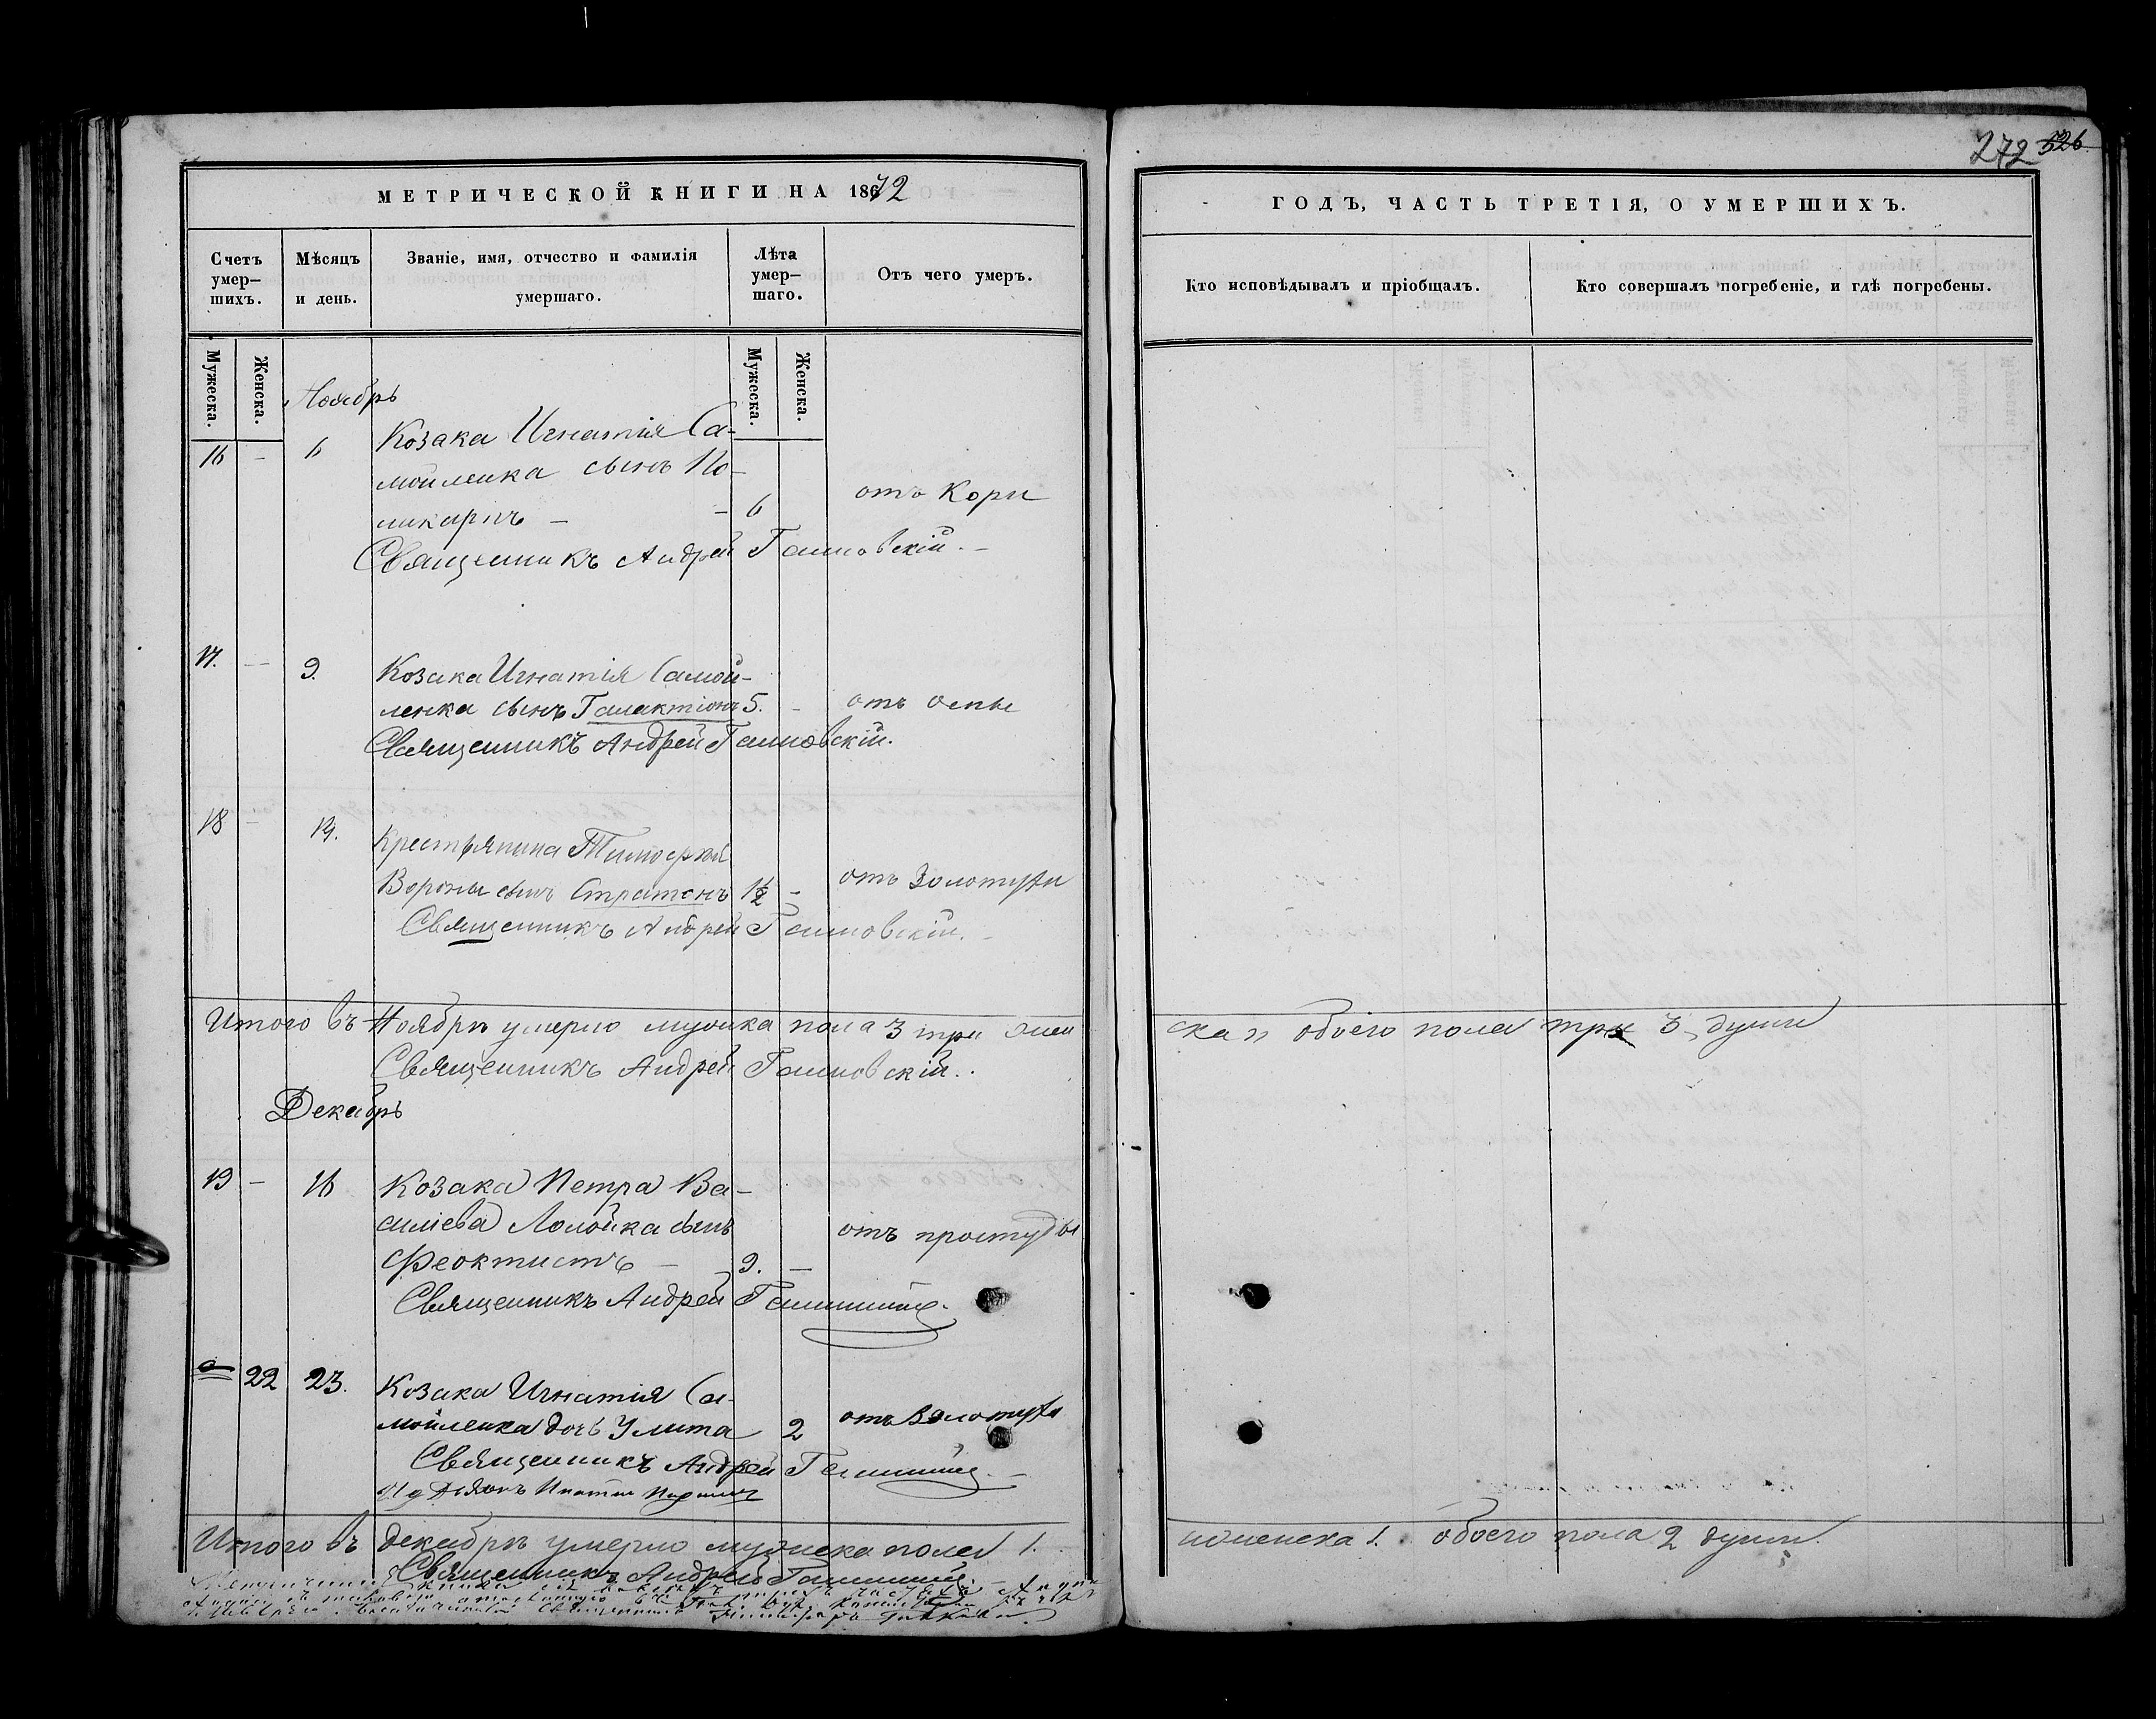 272 526
МЕТРИЧЕСКОЙ КНИГИ НА 1872
ГОДЪ, ЧАСТЬ ТРЕТІЯ, О УМЕРШИХЪ.
Счетъ умер-
шихъ.
Мѣсяцъ
и день.
Званіе, имя, отчество и фамилія
умершаго.
Лѣта
умер-
шаго.
Отъ чего умеръ.
Кто исповѣдывалъ и пріобщалъ.
Кто совершалъ погребеніе, и гдѣ погребены.
Мужеска.
Женска.
Мужеска.
Женска.
Ноябрь
16 - 6 Козака Игнатія Са-
мойленка сынъ По-
ликарпъ - - 6 отъ Кори
Священникъ Андрей
17. - 9. Козака Игнатія Самой-
ленка сынъ Галактіонъ 5. - отъ оспы
Священникъ Андрей
18 - 14. Крестьянина Тимофея
Вороны сынъ Стратонъ 1½ - отъ Золотухи
Священникъ Андрей
Итого въ Ноябрѣ умерло мужска пола 3 три жен
ска " обоего пола три 3 души
Священникъ Андрей
Декабрь
19 - 16 Козака Петра Ва-
силіева сынъ
Феоктистъ - 9. - отъ простуды
Священникъ Андрей
22 23. Козака Игнатія Са-
мойленка дочь Улита 2 отъ Золотухи
Священникъ Андрей
Итого въ декабрѣ умерло мужеска пола 1.
женска 1. обоего пола 2 души.
Священникъ Андрей